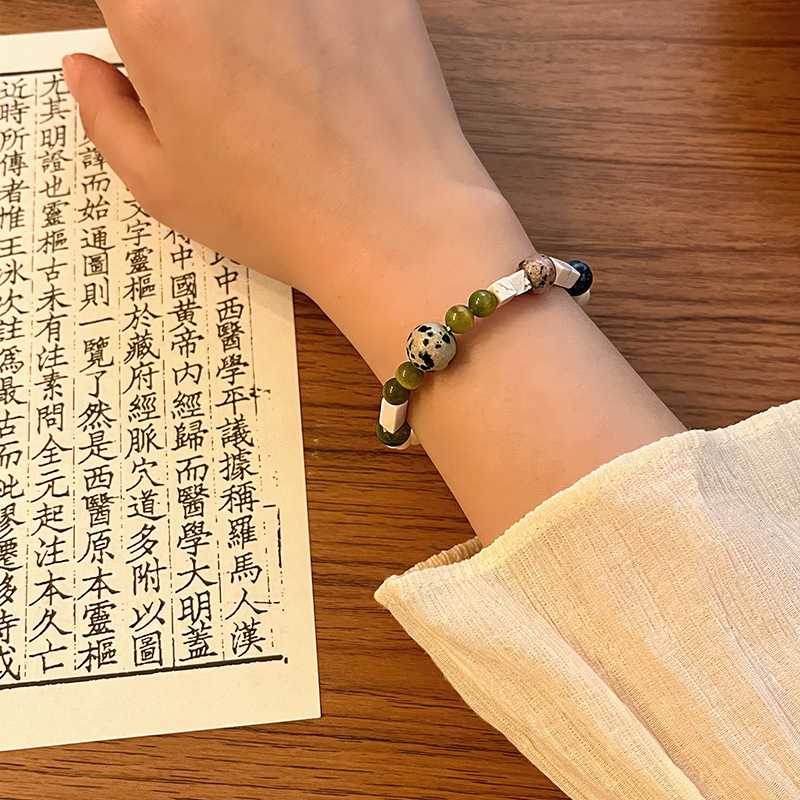 中西醫學平議據稱羅馬人漢
中國黃帝內經歸而醫學大明蓋
文字靈樞於藏府經脈穴道多附以圖
譯而始通圖則一覽了然是西醫原本靈樞
尤其明證也靈樞古未有注素問全元起注本久亡
近時所傳者惟王冰次註爲最古而